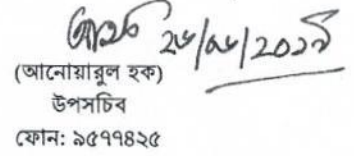 ২৬/০৮/২০১৯
(আনোয়ারুল হক)
উপসচিব
ফোন: ৯৫৭৭৪২৫